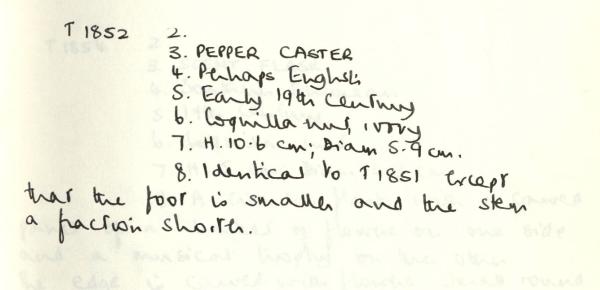 T 1852 2.
3. PEPPER CASTER
4. Perhaps English
5. Early 19th Century
6. Coquilla nut, ivory
7. H. 10.6 cm; Diam 5.9 cm.
8. Identical to T 1851 except
that the foot is smaller and the stem
a fraction shorter.